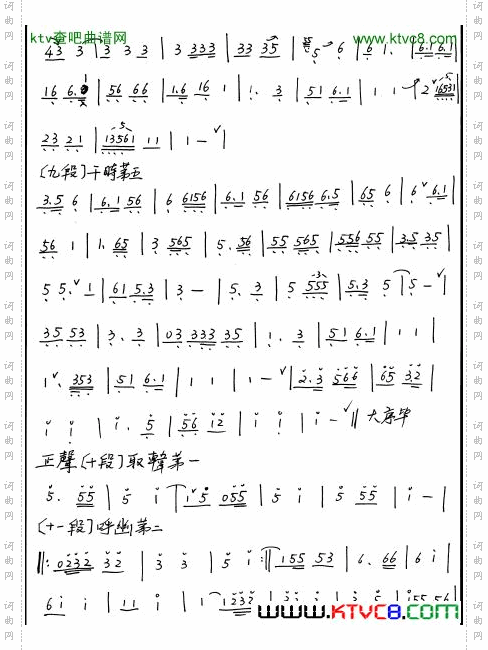 ktv查吧曲谱网 www.ktvc8.com
43 3 | 3 3 3 | 3 333 | 33 35 | 5 6 | 6 1. | 6.1 6.1 |
56 66 | 1.6 16 1 | 1. 3 | 51 6.1 | 1 1 | 2 16531 |
23 21 | 13561 11 | 1 - |
(九段)干時第五
3.5 6 | 6.1 56 | 6 6156 | 6.1 56 | 6156 6.5 | 65 6 | 6 6.1 |
56 1 | 1. 65 | 3 565 | 5. 56 | 55 565 | 556 55 | 3.5 35 |
5 5. 1 | 61 5.3 | 3 - | 5. 3 | 5 555 | 5.3 5 | 5 - |
35 53 | 3. 3 | 03 333 35 | 1. 3 | 51 6.1 | 1 1 |
1. 353 | 51 6.1 | 1 1 | 1 - | 2.3 566 | 65 32 |
i i | i. 5 | 56 i2 | i i | i - || 大序毕
正聲(十段)取韓第一
5. 55 | 5 i | i 5 055 | 5 i | 5 55 | i - |
(十一段)呼幽第二
||: 0232 32 | 3 3 | 5 i :|| 155 53 | 6. 66 | 6 i |
6 i i | 11 i | 1 1232
www.KTVC8.com
词曲网